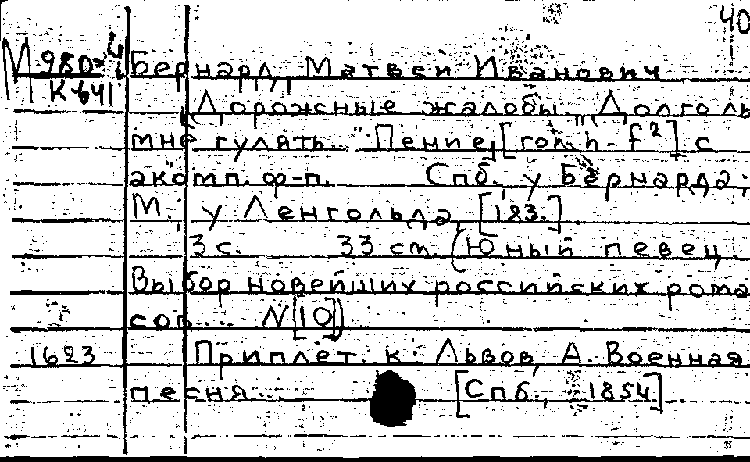 40
М 980-4 Бернард, Матвей Иванович
К 641
Дорожные жалобы. "Долголь
мне гулять..." Пение, [гол. h - f²] с
акомп. ф-п. Спб., у Бернарда;
М., у Ленгольда, [183.]
3 с. 33 см. (Юный певец
Выбор новейших российских рома
сов... N [10])
1623 Приплет. к: Львов, А. Военная
песня... [Спб., 1854]